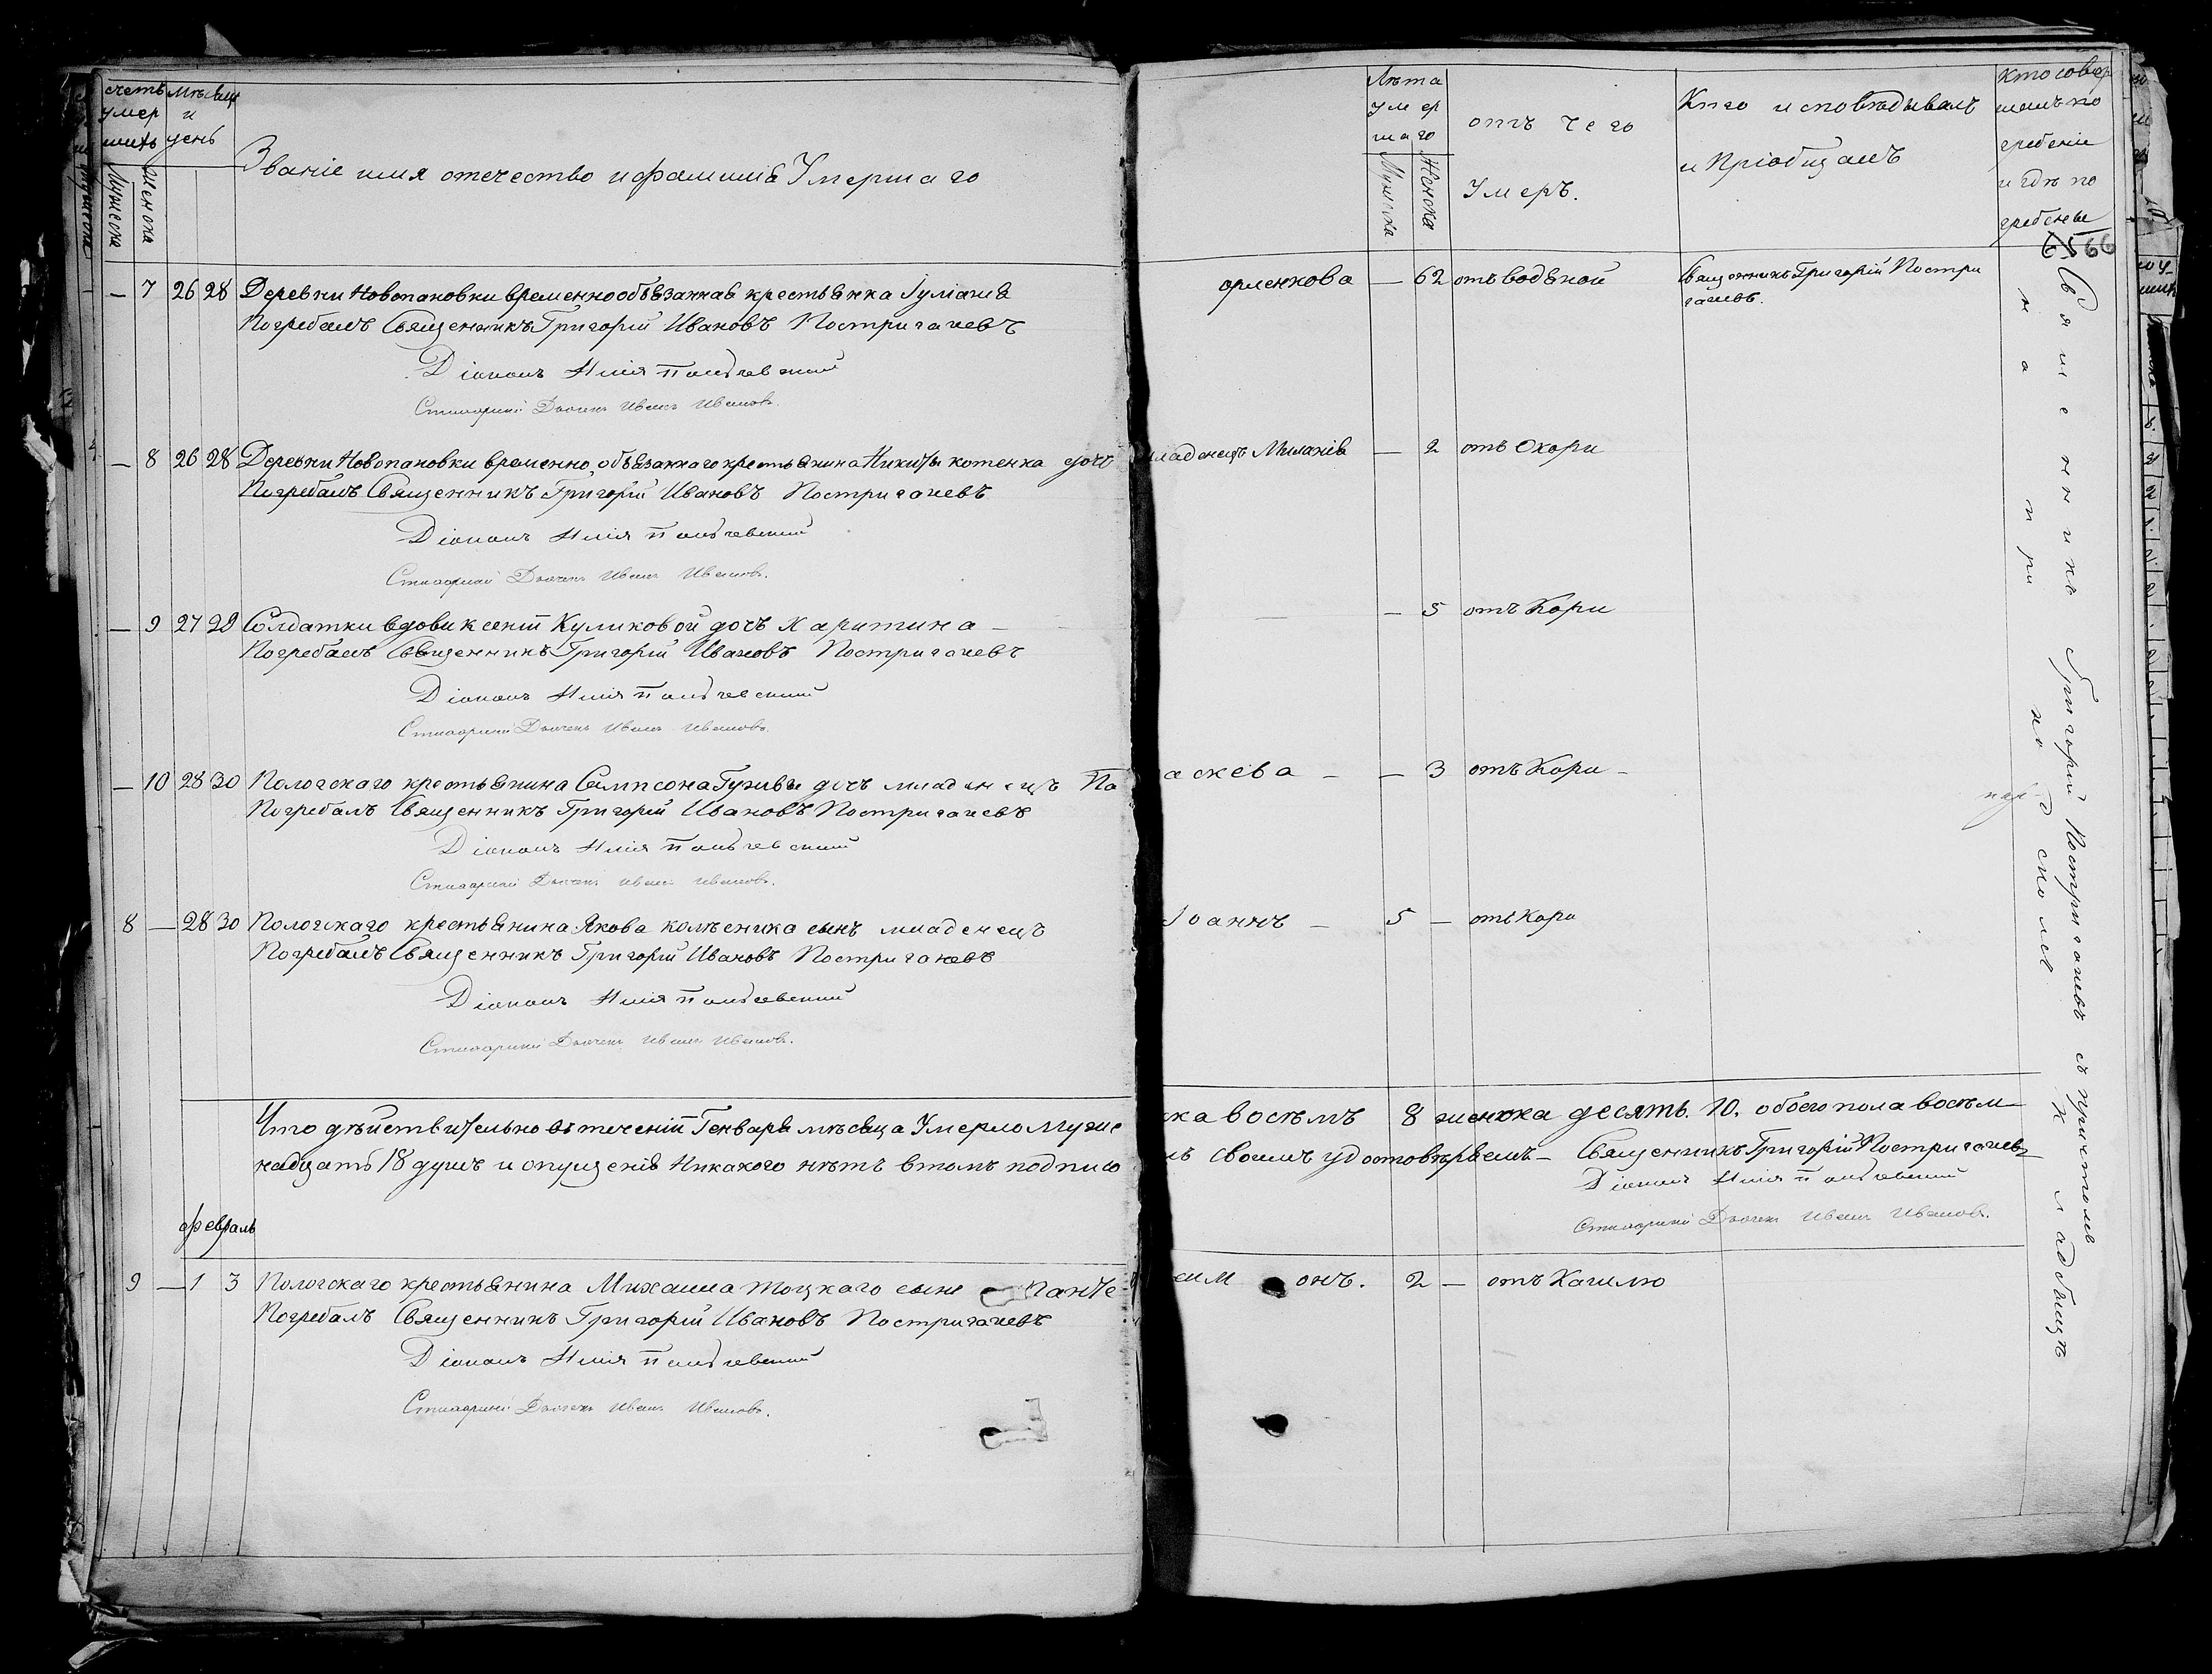 счетъ умер шихъ
Мужеска
Женска
мѣсяцъ и день
Званіе имя отечество и фамилія Умершаго
Лѣта умер шаго
Мужеска
Женска
отъ чего Умеръ.
Кто исповѣдывалъ и Пріобщалъ
Кто совер шалъ по гребеніе и гдѣ по гребены
65 66
— 7 26 28 Деревни Новопановки временнообязанная крестьянка Гуліанія орленкова — 62 отъ водяной Священникъ Григорій Постри
гачевъ.
Погребалъ Священникъ Григорій Ивановъ Постригачевъ
Діаконъ Илія
Дьячекъ Иванъ Ивановъ.
— 8 26 28 Деревни Новопановки временно, обязаннаго крестьянина Никиты котенка дочъ младенецъ Миланія — 2 отъ Окори
Погребалъ Священникъ Григорій Ивановъ Постригачевъ
Діаконъ Илія
Дьячекъ Иванъ Ивановъ.
— 9 27 29 Солдатки вдовы ксеніи Куликовой дочъ Харитина — — 5 отъ Кори
Погребалъ Священникъ Григорій Ивановъ Постригачевъ
Діаконъ Илія
Дьячекъ Иванъ Ивановъ.
— 10 28 30 Пологскаго крестьянина Сампсона Гузивы дочъ младенецъ Па раскева — — 3 отъ Кори —
Погребалъ Священникъ Григорій Ивановъ Постригачевъ
Діаконъ Илія
Дьячекъ Иванъ Ивановъ.
8 — 28 30 Пологскаго крестьянина Якова колѣсника сынъ младенецъ Іоаннъ — 5 — отъ Кори
Погребалъ Священникъ Григорій Ивановъ Постригачевъ
Діаконъ Илія
Дьячекъ Иванъ Ивановъ.
Что дѣйствительно въ теченіи Генваря мѣсяца Умерло мужеска восѣмъ 8 женска десять. 10. обоего пола восѣм—
надцать 18 душъ и опущенія Никакого нѣтъ втомъ подписомъ своимъ удостовѣряемъ — Священникъ Григорій Постригачевъ
Діаконъ Илія
Дьячекъ Иванъ Ивановъ.
февраль
9 — 1 3 Пологскаго крестьянина Михаила тоцкаго сынъ Пантелеимонъ. 2 — отъ Кашлю
Погребалъ Священникъ Григорій Ивановъ Постригачевъ
Діаконъ Илія
Дьячекъ Иванъ Ивановъ.
Священникъ Григорій Постригачевъ съ причтомъ
на при ход ском кладбищѣ